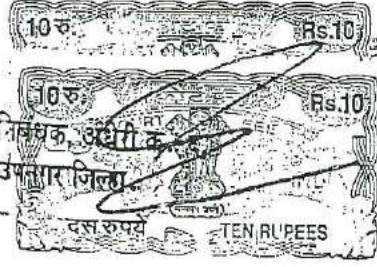 10 रु. Rs.10
10 रु. Rs.10
निबंधक, अंधेरी क्र.
उपनगर जिल्हा.
दस रुपये TEN RUPEES